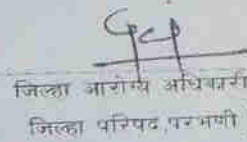 जिल्हा आरोग्य अधिकारी
जिल्हा परिषद,परभणी